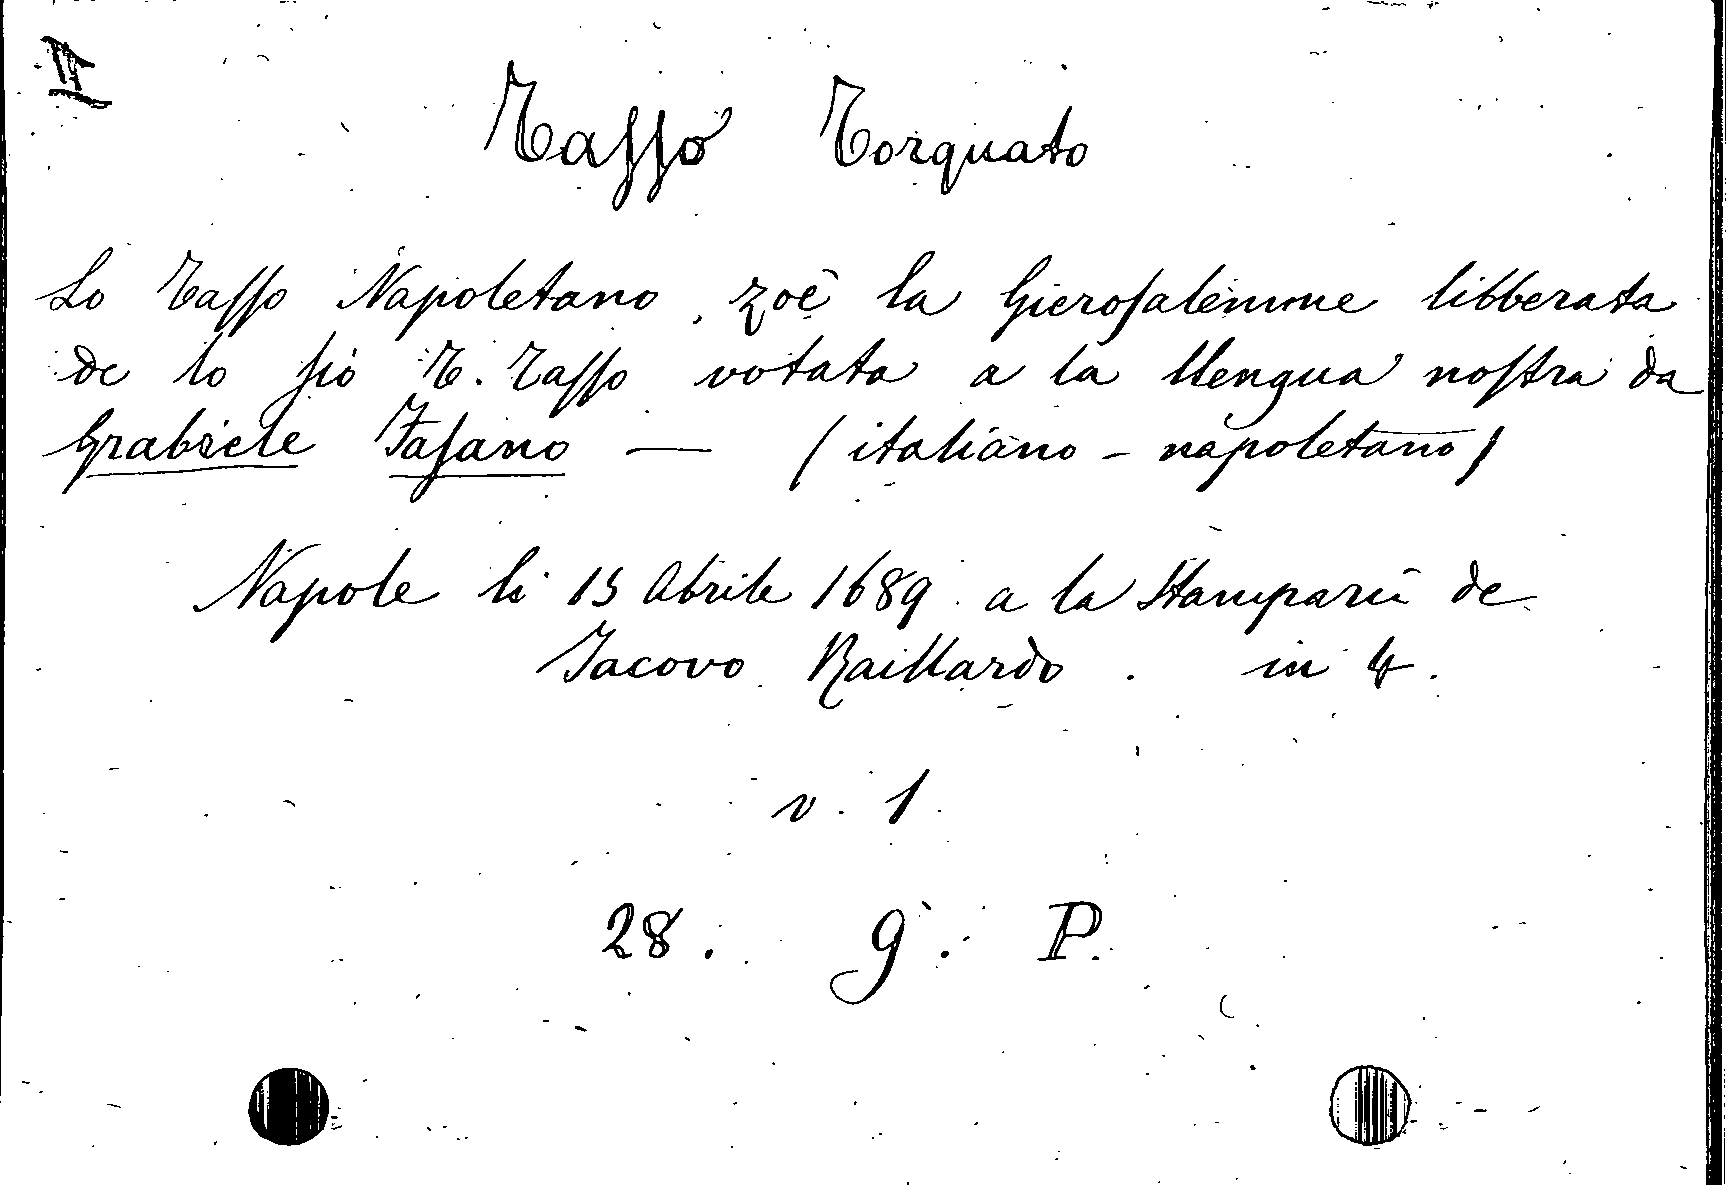 II
Tasso Torquato
Lo Tasso Napoletano, zoè la Gierosalemme libberata
de lo sio T. Tasso votata a la llengua nostra da
Grabiele Fasano — (italiano - napoletano)
Napole li 15 Abrile 1689 a la Stamparia de
Jacovo Raillardo. in 4.
v. 1
28. g. P.